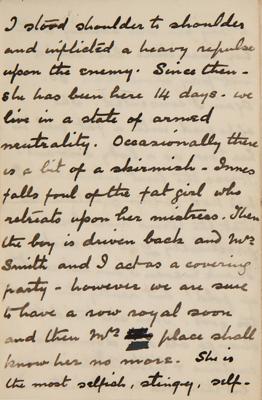 I stood shoulder to shoulder
and inflicted a heavy repulse
upon the enemy. Since then -
she has been here 14 days - we
live in a state of armed
neutrality. Occasionally there
is a bit of a skirmish - Innes
falls foul of the fat girl who
retreats upon her mistress. Then
the boy is driven back and Mrs
Smith and I act as a covering
party - however we are sure
to have a row royal soon
and then Mrs place shall
know her no more. She is
the most selfish, stingey, self-